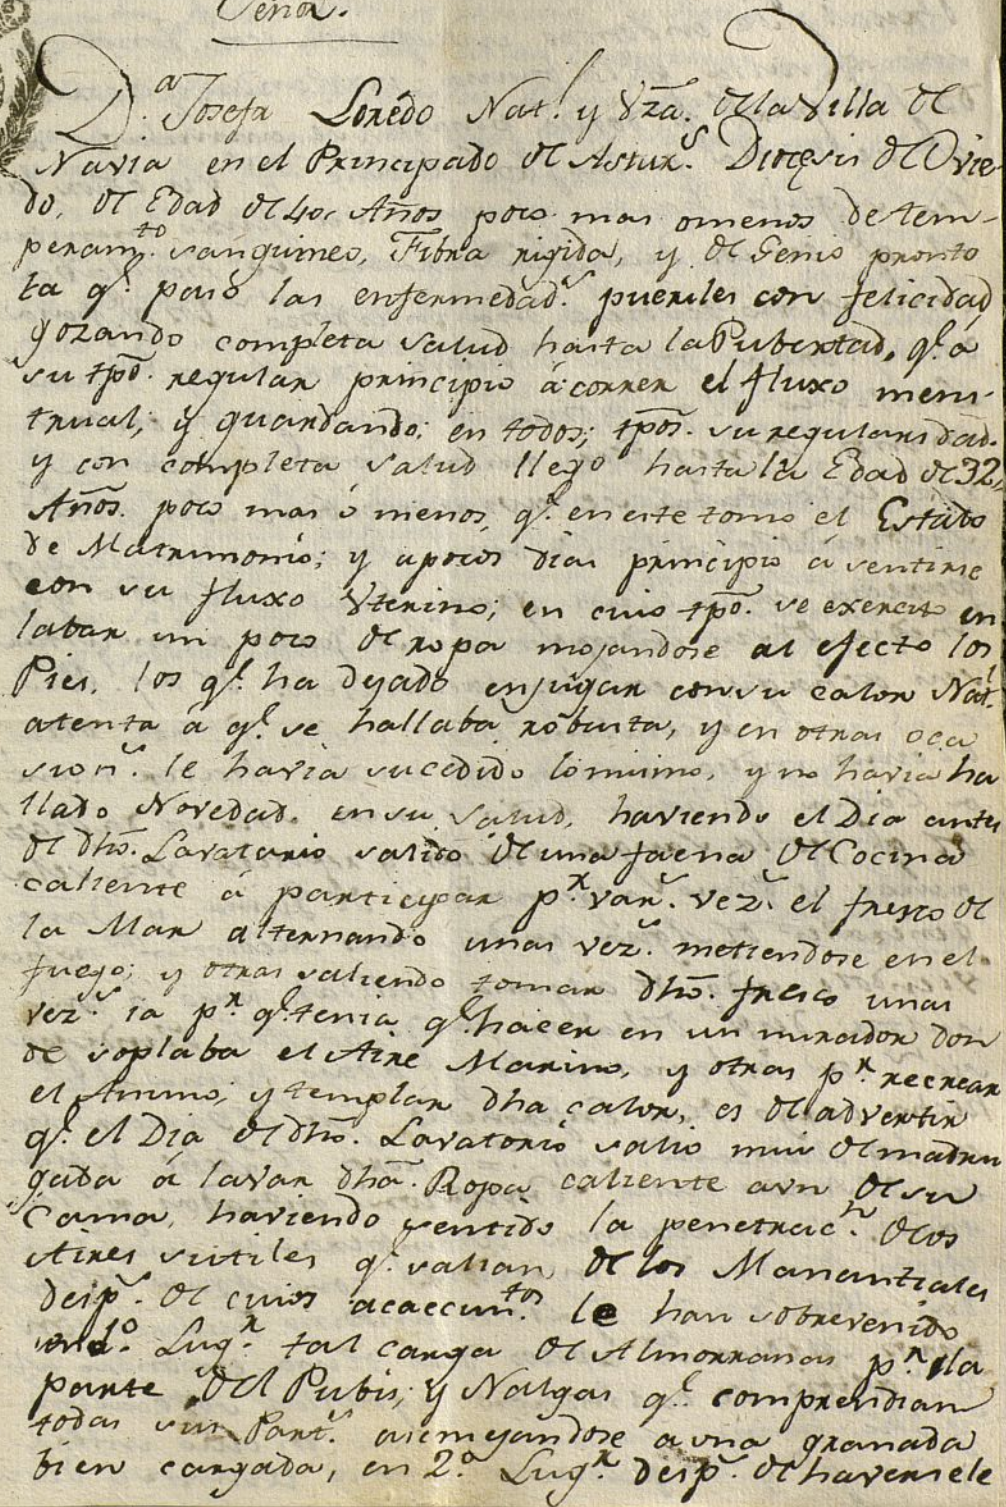 Señor.
D.ª Josefa Loredo Nat.l y Vzª. de la Villa de
Navia en el Principado de Astur.s Diocesis de Ovie-
do, de Edad de 40, Años poco mas omenos de tem-
peram.to sanguineo, Fibra rigida, y de Genio pronto
ta q.e pasó las enfermedad.s pueriles con felicidad
gozando completa salud hasta la Pubertad, q.e á
su tpō. regular principio á correr el fluxo mens-
trual, y guardando; en todos; tpōs. su regularidad.
y con completa salud llego hasta la Edad de 32,,
Años. poco mas ó menos, q.e en este tomo el Estado
de Matrimonio; y apocos dias principio á sentirse
con su fluxo Vterino; en cuio tpō. se exercito en
labar un poco de ropa mojandose al efecto los
Pies, los q.e ha dejado enjugar con su calor Nat.l
atenta á q.e se hallaba robusta, y en otras oca
sion.s le havia sucedido lo mismo, y no havia ha
llado Novedad en su salud, haviendo el Dia antes
de dhō. Lavatorio salido de una faena de Cocina
caliente á participar p.r var.s vez.s el fresco de
la Mar alternando unas vez.s metiendose en el
fuego; y otras saliendo tomar dhō. fresco unas
vez.s ia p.r q.e tenia q.e hacer en un mirador don
de soplaba el Aire Marino, y otras p.r recrear
el Animo, y templar dha calor, es de advertir
q.e el Dia de dhō. Lavatorio salio mui de madru
gada á lavar dhā. Ropa caliente aun de su
Cama, haviendo sentido la penetrac.n de los
Aires sutiles q.e salian de los Manantiales
desp.s de cuios acaecim.tos le han sobrevenido
en 1.º Lug.r tal carga de Almorranas p.r la
parte del Pubis, y Nalgas q.e comprendian
todas sus Part.s asemejandose a una granada
bien cargada, en 2.º Lug.r desp.s de haversele